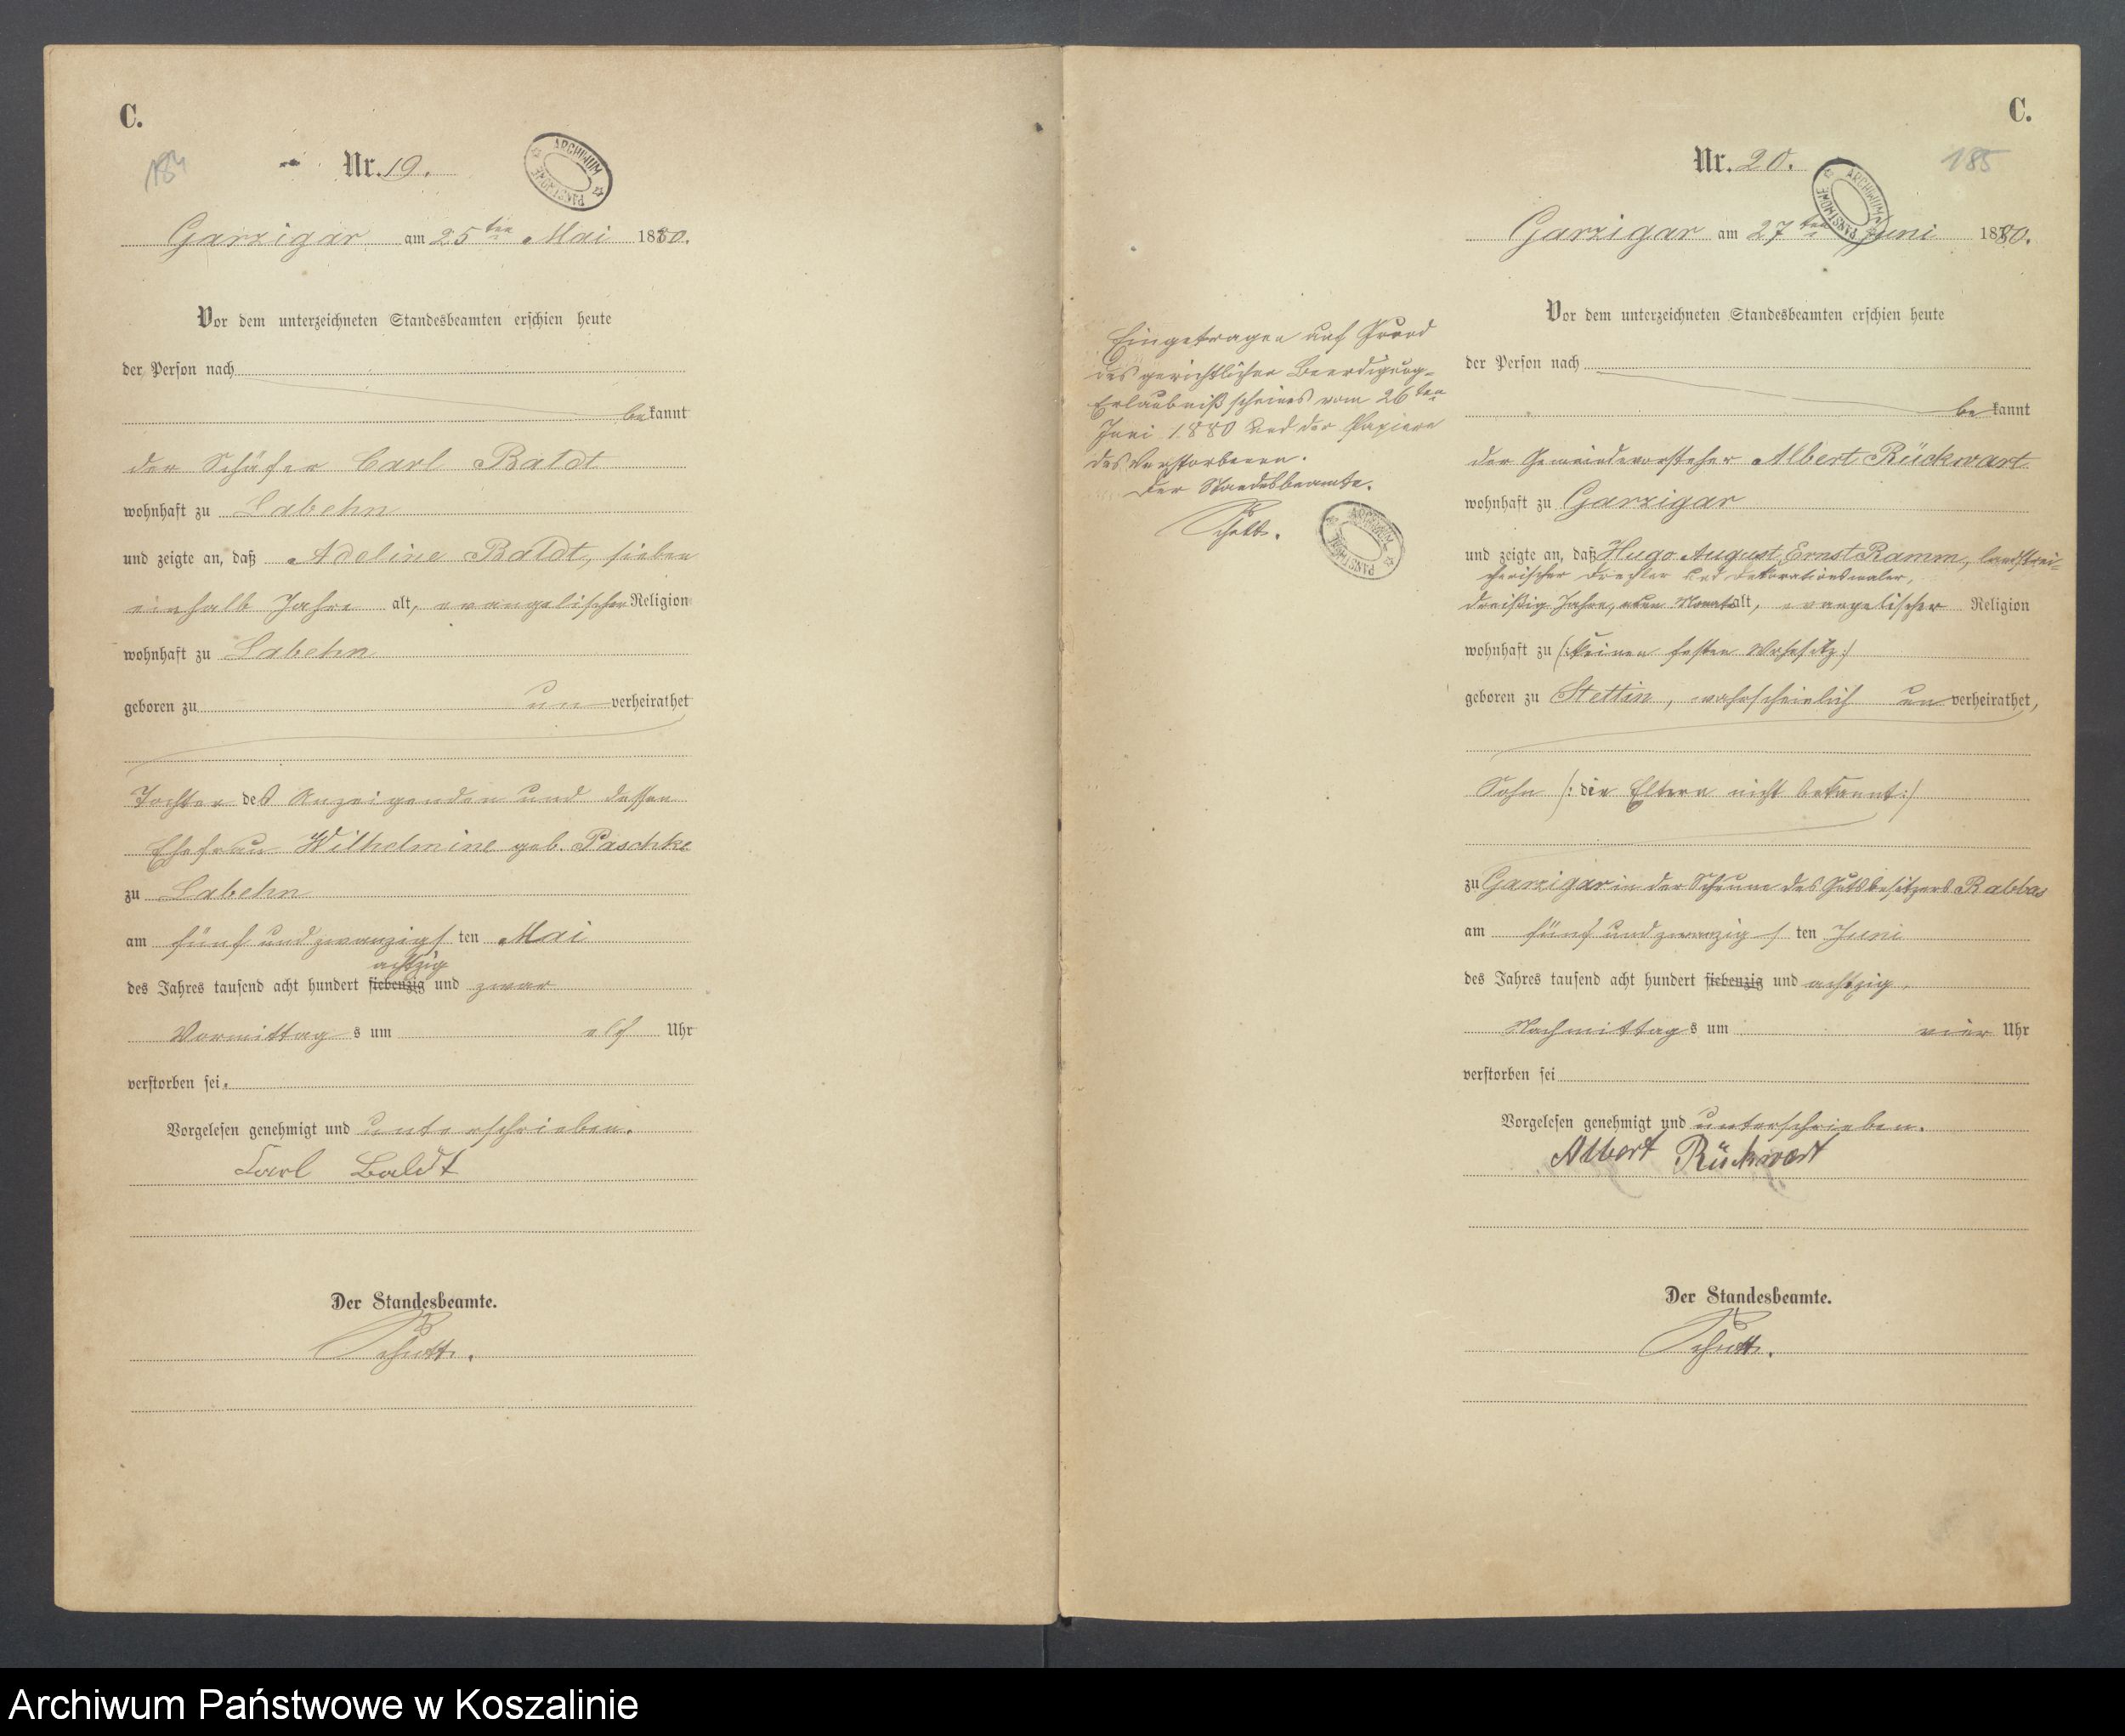 C.
184
Nr. 19.
ARCHIWUM PAŃSTWOWE
Garzigar am 25ten Mai 1880.
Vor dem unterzeichneten Standesbeamten erschien heute
der Person nach
bekannt
der Schäfer Carl Baldt
wohnhaft zu Labehn
und zeigte an, daß Adeline Baldt, sieben
einhalb Jahre alt, evangelischer Religion
wohnhaft zu Labehn
geboren zu unverheirathet
Tochter des Anzeigenden und dessen
Ehefrau Wilhelmine geb. Paschke
zu Labehn
am fünf und zwanzigsten Mai
achtzig
des Jahres tausend acht hundert siebenzig und zwar
Vormittags um elf Uhr
verstorben sei.
Vorgelesen genehmigt und unterschrieben.
Carl Baldt
Der Standesbeamte.
C.
Nr. 20.
185
ARCHIWUM PAŃSTWOWE
Garzigar am 27ten Juni 1880.
Eingetragen auf Grund
des gerichtlichen Beerdigung-
Erlaubnißscheines vom 26ten
Juni 1880 und der Papiere
des Verstorbenen.
Der Standesbeamte.
ARCHIWUM PAŃSTWOWE
Vor dem unterzeichneten Standesbeamten erschien heute
der Person nach
bekannt
der Gemeindevorsteher Albert Rückwart
wohnhaft zu Garzigar
und zeigte an, daß Hugo August Ernst Ramm, landstrei-
cherischer Drechsler und Dekorationsmaler,
dreißig Jahre, Monate alt, evangelischer Religion
wohnhaft zu (:keinen festen Wohnsitz:)
geboren zu Stettin, wahrscheinlich unverheirathet,
Sohn (: die Eltern nicht bekannt:)
zu Garzigar in der Scheune des Gutsbesitzers Rabbas
am fünf und zwanzigsten Juni
des Jahres tausend acht hundert siebenzig und achtzig,
Nachmittags um vier Uhr
verstorben sei
Vorgelesen genehmigt und unterschrieben.
Albert Rückwart
Der Standesbeamte.
Archiwum Państwowe w Koszalinie